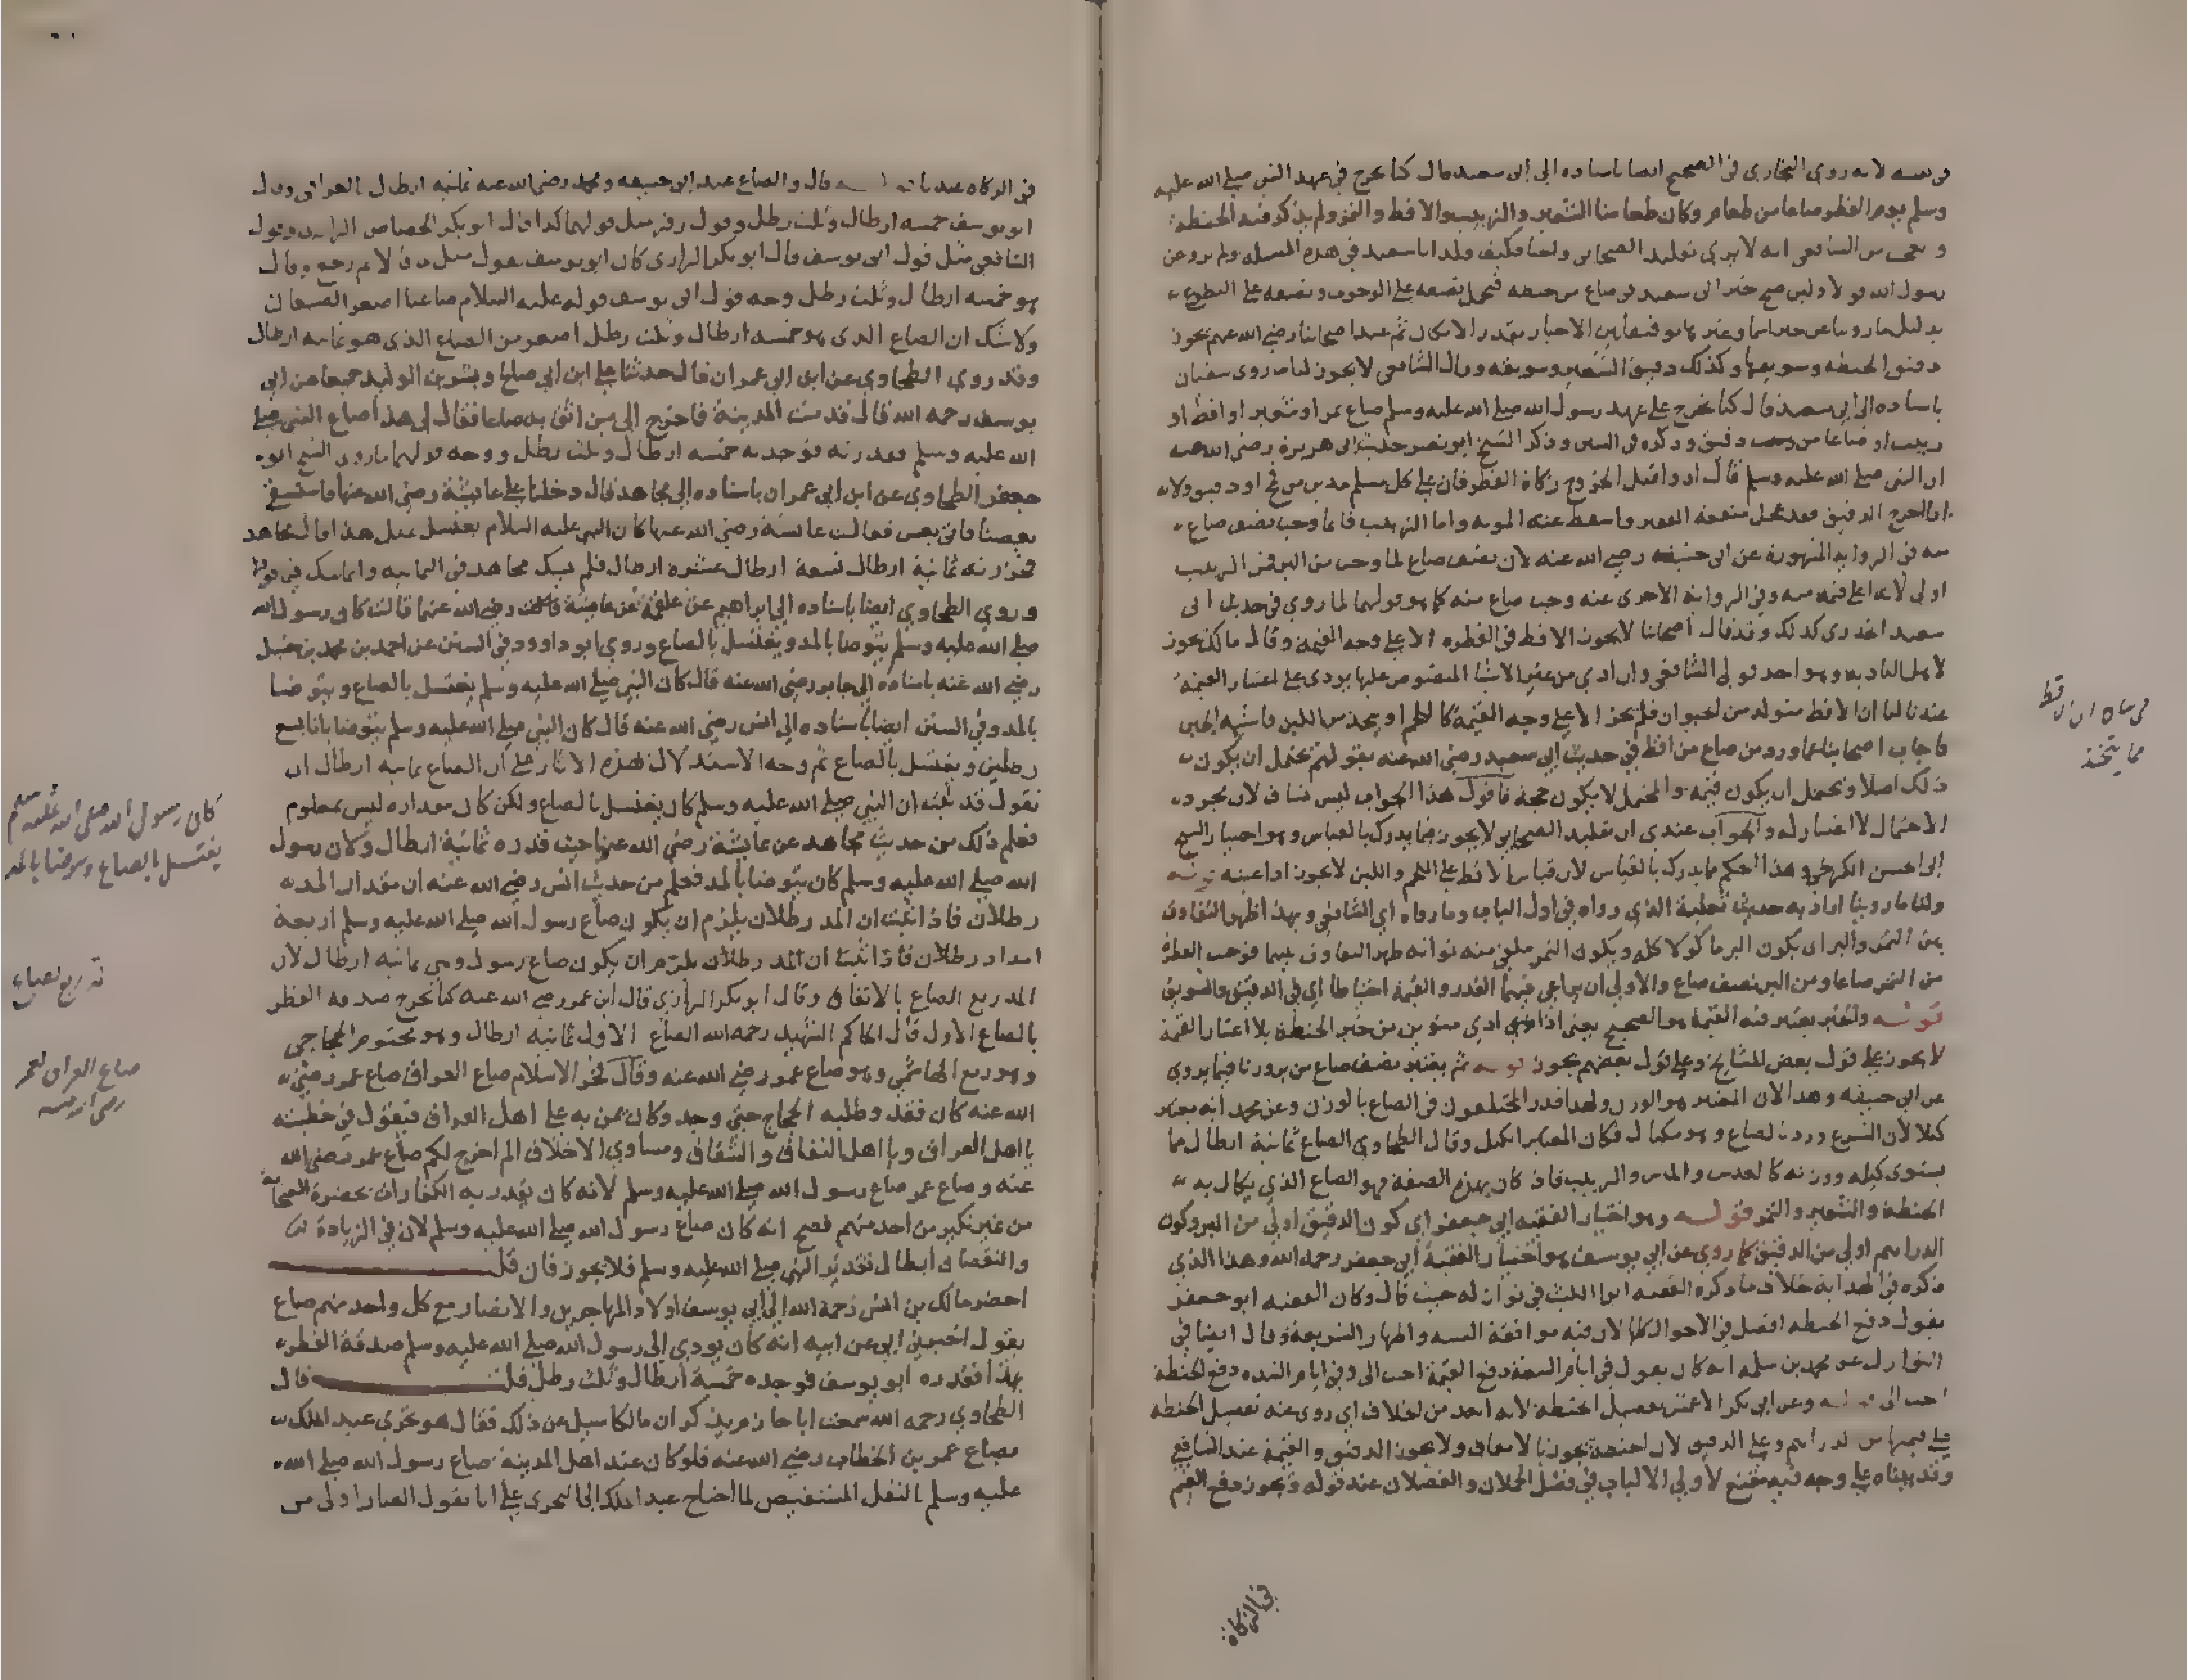 لانه روى البخارى في الصحيح ايضا باسناده الى ابى سعيد قال كنا نخرج في عهد النبى صلى الله عليه
وسلم يوم الفطر صاعا من طعام وكان طعامنا الشعير والزبيب والاقط والتمر ولم يذكر فيه الحنطة
الشافعى انه لا يرى تقليد الصحابى ولنا فكيف قلد ابا سعيد في هذه المسئلة ولم يرو عن
رسول الله قولا ولين صح خبر ابى سعيد في صاع من حنطة فيحمل نصفه على الوجوب ونصفه على التطوع
بدليل ما روينا من خبرنا وغيره توفيقا بين الاخبار بقدر الامكان ثم عند اصحابنا رضى الله عنهم يجوز
دقيق الحنطة وسويقها وكذلك دقيق الشعير وسويقه وقال الشافعى لا يجوز لنا ما روى سفيان
باسناده الى ابى سعيد قال كنا نخرج على عهد رسول الله صلى الله عليه وسلم صاع تمر او شعير او اقط او
زبيب او صاعا من دقيق وذكره في السنن وذكر الشيخ ابو نصر حديث ابى هريرة رضى الله عنه
ان النبى صلى الله عليه وسلم قال ادوا قبل الخروج زكاة الفطر فان على كل مسلم مدين من قمح او دقيق ولانه
اذا اخرج الدقيق فقد عجل منفعة الفقير واسقط عنه المونة واما الزبيب فانما وجب نصف صاع
منه في الرواية المشهورة عن ابى حنيفة رضى الله عنه لان نصف صاع لما وجب من البر فمن الزبيب
اولى لانه اعلى قيمة منه وفي الرواية الاخرى عنه وجب صاع منه كما هو قولهما لما روى في حديث ابى
سعيد الخدرى كذلك وقد قال اصحابنا لا يجوز الاقط في الفطرة الا على وجه القيمة وقال مالك يجوز
لاهل البادية وهو احد قولى الشافعى وان ادى من غير الاشيا المنصوص عليها يودى على اعتبار القيمة
عندنا لنا ان الاقط متولد من الحيوان فلم يجز الا على وجه القيمة كاللحم او يتخذ من اللبن فاشبه الجبن
فاجاب اصحابنا عما ورد من صاع من اقط في حديث ابى سعيد رضى الله عنه بقولهم يحتمل ان يكون
ذلك اصلا ويحتمل ان يكون قيمة والمحتمل لا يكون حجة فاقول هذا الجواب ليس بشاف لان مجرد
الاحتمال لا اعتبار له والجواب عندى ان تقليد الصحابى لا يجوز فيما يدرك بالقياس وهو اختيار الشيخ
ابى الحسن الكرخى وهذا الحكم مما يدرك بالقياس لان قياس الاقط على اللحم واللبن لا يجوز اداء عينه قوله
ولنا ما روينا اراد به حديث ثعلبة الذى رواه في اول الباب وما رواه اى الشافعى وبهذا ظهر التفاوت
بين التمر والبر اى بكون البر ماكولا كله وبكون التمر ملقى منه نواته ظهر التفاوت بينهما فوجب الفطرة
من التمر صاعا ومن البر نصف صاع والاولى ان يراعى فيهما القدر والقيمة احتياطا اى في الدقيق والسويق
قوله والخبز يعتبر فيه القيمة هو الصحيح يعنى اذا ادى منوين من خبز الحنطة بلا اعتبار القيمة
لا يجوز على قول بعض المشايخ وعلى قول بعضهم يجوز قوله ثم يعتبر نصف صاع من بر وزنا فيما يروى
عن ابى حنيفة وهذا لان المعتبر هو الوزن ولهذا قدر المختلفون في الصاع بالوزن وعن محمد انه يعتبر
كيلا لان الشرع ورد بالصاع وهو مكيال فكان المعتبر الكيل وقال الطحاوى الصاع ثمانية ارطال مما
يستوى كيله ووزنه كالعدس والماش والزبيب فاذا كان بهذه الصفة فهو الصاع الذى يكال به
الحنطة والشعير والتمر قوله وهو اختيار الفقيه ابى جعفر اى كون الدقيق اولى من البر وكون
الدراهم اولى من الدقيق كما روى عن ابى يوسف هو اختيار الفقيه ابى جعفر رحمه الله وهذا الذى
ذكره في الهداية خلاف ما ذكره الفقيه ابو الليث في نوازله حيث قال وكان الفقيه ابو جعفر
يقول دفع الحنطة افضل في الاحوال كلها لان فيه موافقة السنة واظهار الشريعة وقال ايضا في
النوازل عن محمد بن سلمة انه كان يقول في ايام السعة دفع القيمة احب الى وفى ايام الشدة دفع الحنطة
احب الى قوله وعن ابى بكر الاعمش تفضيل الحنطة لانه ابعد من الخلاف اى روى عنه تفضيل الحنطة
على قيمتها من الدراهم وعلى الدقيق لان الحنطة تجوز بالاتفاق ولا يجوز الدقيق والقيمة عند الشافعى
وقد بيناه على وجه فيه مقنع لاولى الالباب في فصل الحملان والفصلان عند قوله ويجوز دفع القيم
في الزكاة
مما يتخذ
في الزكاة عندنا قوله قال والصاع عند ابى حنيفة ومحمد رضى الله عنه ثمانية ارطال بالعراقى وقال
ابو يوسف خمسة ارطال وثلث رطل وقول زفر مثل قولهما كذا قال ابو بكر الجصاص الرازى وقول
الشافعى مثل قول ابى يوسف قال ابو بكر الرازى كان ابو يوسف يقول مثل قولهم ثم رجع وقال
هو خمسة ارطال وثلث رطل وجه قول ابى يوسف قوله عليه السلام صاعنا اصغر الصيعان
ولا شك ان الصاع الذى هو خمسة ارطال وثلث رطل اصغر من الصاع الذى هو ثمانية ارطال
وقد روى الطحاوى عن ابن ابى عمران قال حدثنا على ابن ابى صالح وبشر بن الوليد جميعا عن ابى
يوسف رحمه الله قال قدمت المدينة فاخرج الى من اثق به صاعا فقال لى هذا صاع النبى صلى
الله عليه وسلم فقدرته فوجدته خمسة ارطال وثلث رطل ووجه قولهما ما روى الشيخ ابو
جعفر الطحاوى عن ابن ابى عمران باسناده الى مجاهد قال دخلنا على عايشة رضى الله عنها فاستسقى
بعضنا فاتى بعس فقالت عايشة رضى الله عنها كان النبى عليه السلام يغتسل بمثل هذا قال مجاهد
فحزرته ثمانية ارطال تسعة ارطال عشرة ارطال فلم يشك مجاهد في الثمانية وانما شك في
وروى الطحاوى ايضا باسناده الى ابراهيم عن علقمة عن عايشة رضى الله عنها قالت كان رسول الله
صلى الله عليه وسلم يتوضا بالمد ويغتسل بالصاع وروى ابو داوود في السنن عن احمد بن محمد بن حنبل
رضى الله عنه باسناده الى جابر رضى الله عنه قال كان النبى صلى الله عليه وسلم يغتسل بالصاع ويتوضا
بالمد وفي السنن ايضا باسناده الى انس رضى الله عنه قال كان النبى صلى الله عليه وسلم يتوضا بانا يسع
رطلين ويغتسل بالصاع ثم وجه الاستدلال بهذه الاثار على ان الصاع ثمانية ارطال ان
نقول قد ثبت ان النبى صلى الله عليه وسلم كان يغتسل بالصاع ولكن كان مقداره ليس بمعلوم
فعلم ذلك من حديث مجاهد عن عايشة رضى الله عنها حيث قدره ثمانية ارطال ولان رسول
الله صلى الله عليه وسلم كان يتوضا بالمد فعلم من حديث انس رضى الله عنه ان مقدار المد
رطلان فاذا ثبت ان المد رطلان يلزم ان يكون صاع رسول الله صلى الله عليه وسلم اربعة
امداد رطلان فاذا ثبت ان المد رطلان يلزم ان يكون صاع رسول وهى ثمانية ارطال لان
المد ربع الصاع بالاتفاق وقال ابو بكر الرازى قال ابن عمر رضى الله عنه كنا نخرج صدقة الفطر
بالصاع الاول قال الحاكم الشهيد رحمه الله الصاع الاول ثمانية ارطال وهو مختوم الحجاجى
وهو ربع الهاشمى وهو صاع عمر رضى الله عنه وقال فخر الاسلام صاع العراق صاع عمر رضى
الله عنه كان فقد وطلبه الحجاج حتى وجد وكان يمن به على اهل العراق فيقول في خطبته
يا اهل العراق ويا اهل النفاق والشقاق ومساوى الاخلاق الم اخرج لكم صاع عمر رضى الله
عنه وصاع عمر صاع رسول الله صلى الله عليه وسلم لانه كان يقدر به الكفارات بحضرة الصحابة
من غير نكير من احد منهم فصح انه كان صاع رسول الله صلى الله عليه وسلم لان في الزيادة
والنقصان ابطال تقدير النبى صلى الله عليه وسلم فلا يجوز فان قلت
احضر مالك بن انس رحمه الله الى ابى يوسف اولاد المهاجرين والانصار مع كل واحد منهم صاع
يقول اخبرنى ابى عن ابيه انه كان يودى الى رسول الله صلى الله عليه وسلم صدقة الفطر
بهذا فقدره ابو يوسف فوجده خمسة ارطال وثلث رطل قلت قال
الطحاوى رحمه الله سمعت ابا حازم يذكر ان مالكا سيل عن ذلك فقال هو تحرى عبد الملك
بصاع عمر بن الخطاب رضى الله عنه فلو كان عند اهل المدينة صاع رسول الله صلى الله
عليه وسلم بالنقل المستفيض لما احتاج عبد الملك الى التحرى على انا نقول العيار اولى من
كان رسول الله صلى الله عليه وسلم
يغتسل بالصاع ويتوضا بالمد
ربع الصاع
صاع العراق لعمر
رضى الله عنه